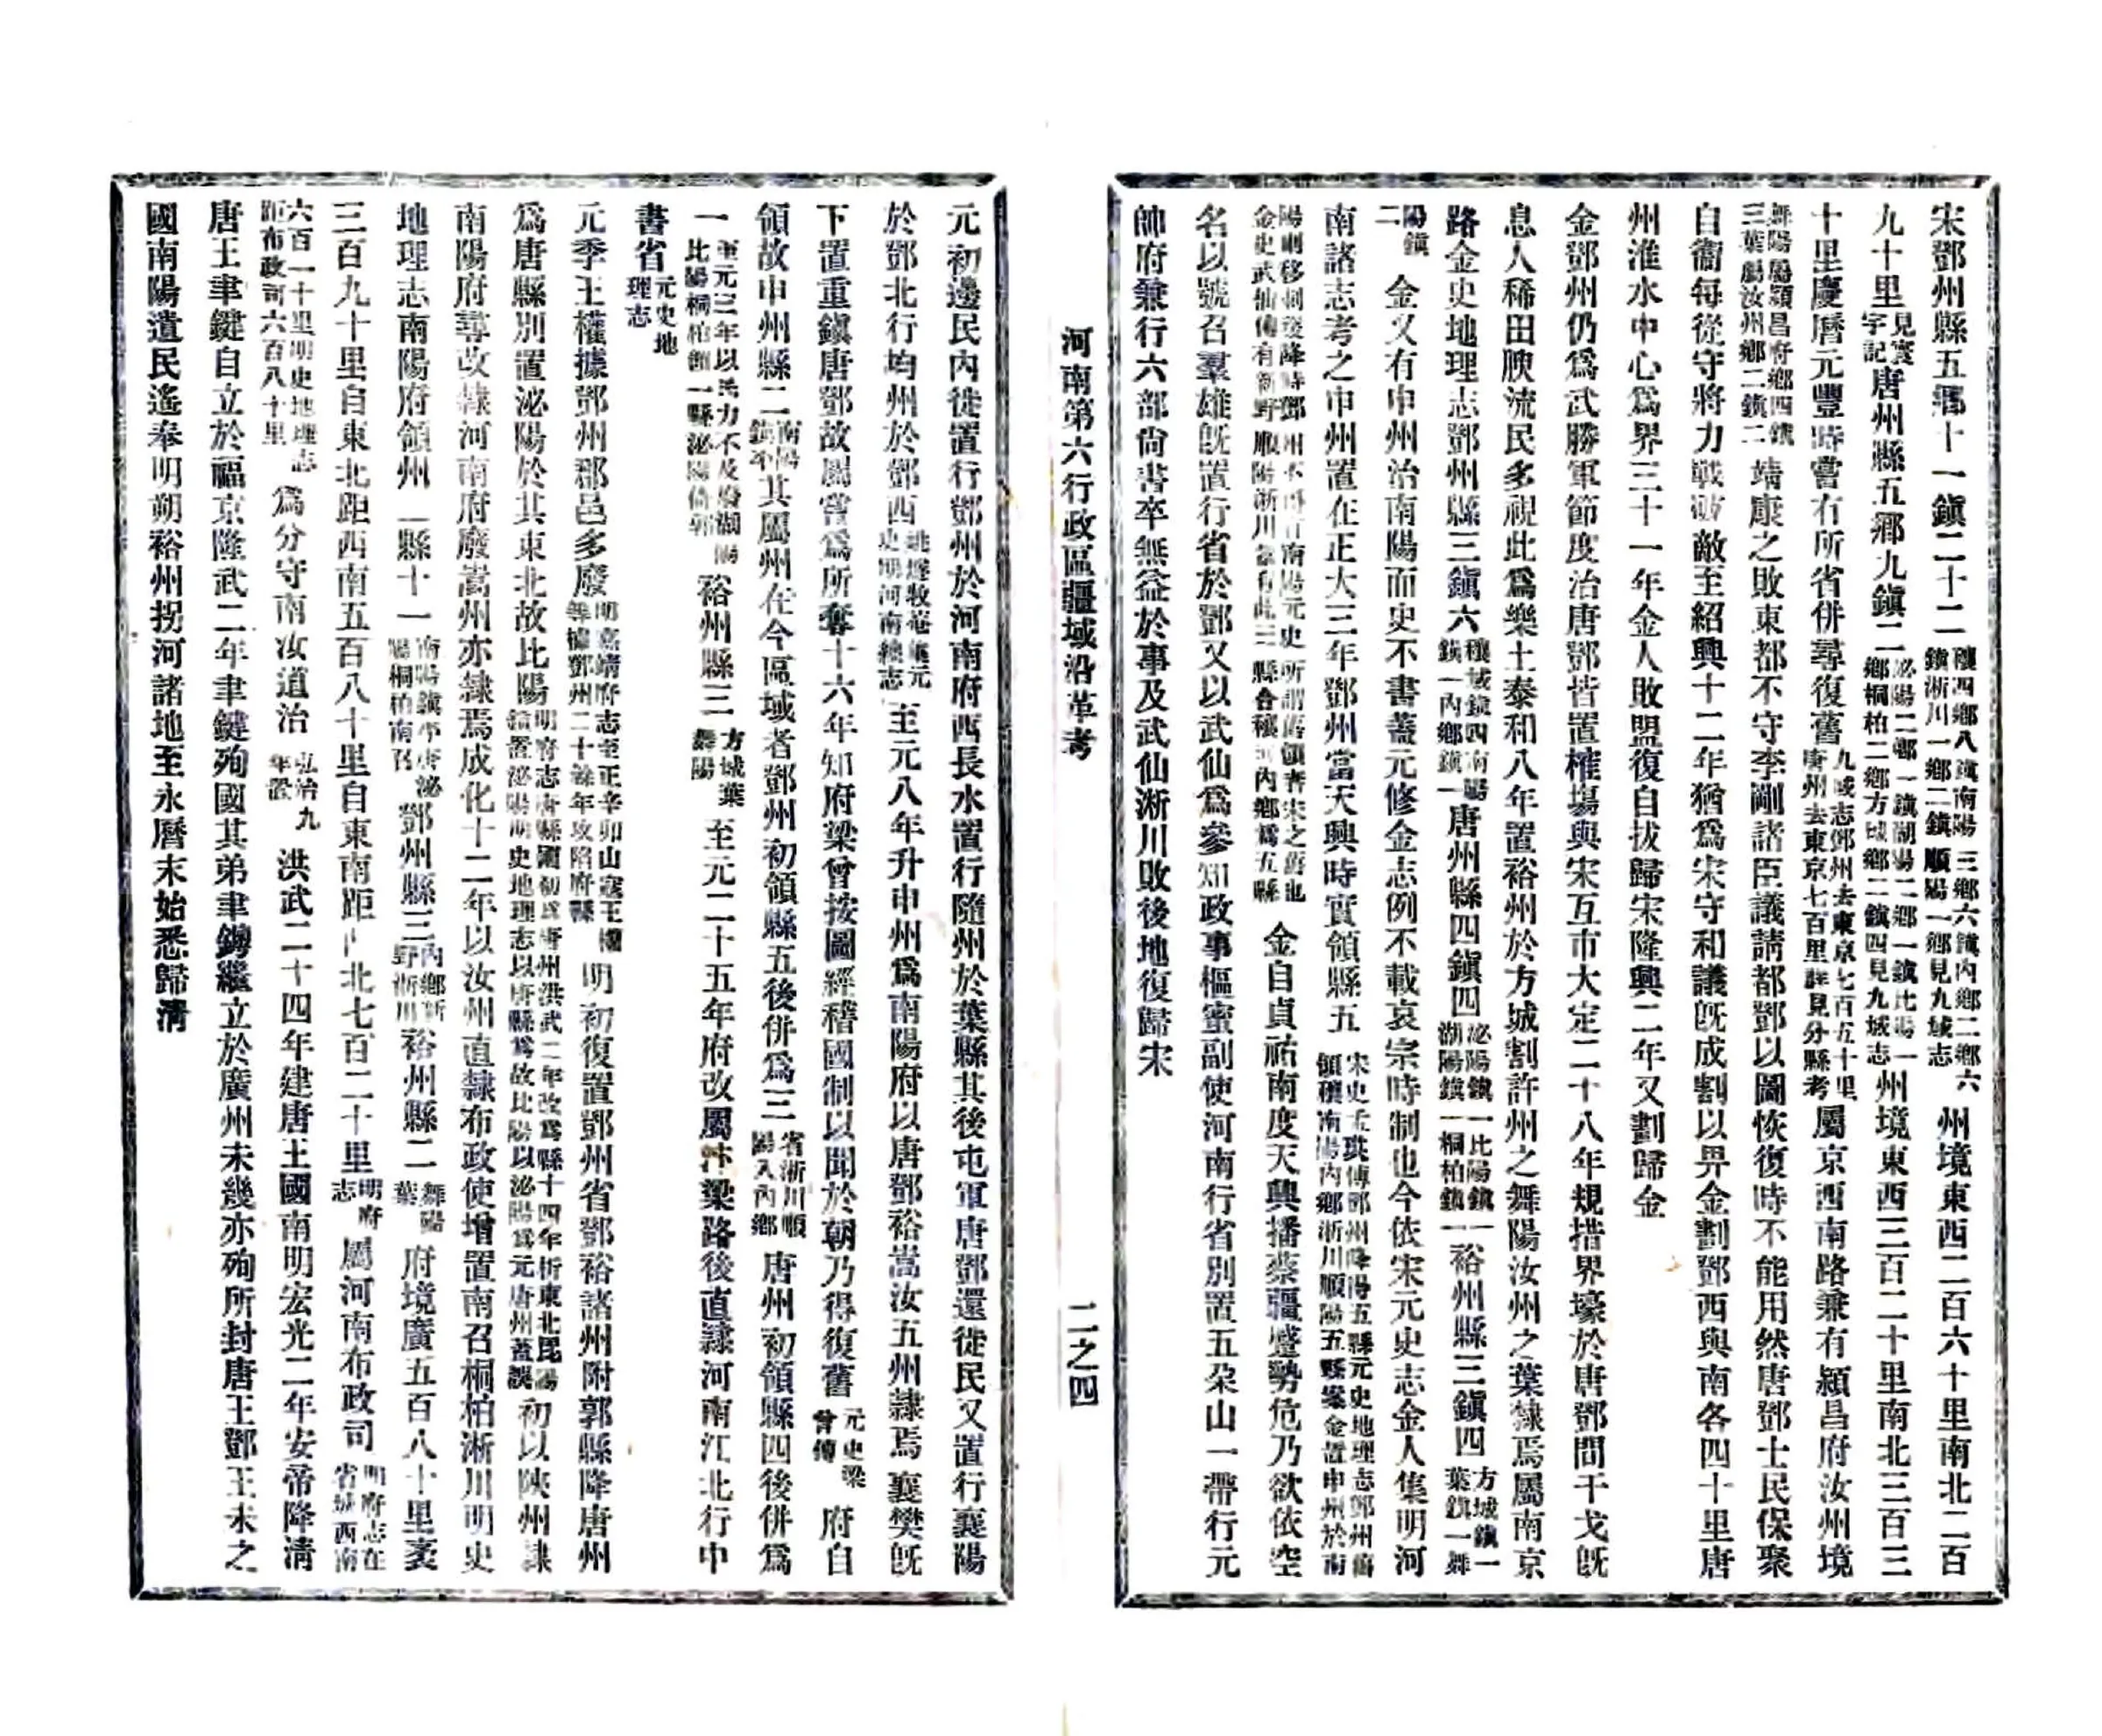 宋鄧州縣五鄉十一鎮二十二穰四鄉八鎮南陽三鄉六鎮內鄉二鄉六鎮淅川一鄉二鎮順陽一鄉見九域志州境東西二百六十里南北二百
九十里見寰宇記唐州縣五鄉九鎮二泌陽二鄉一鎮湖陽二鄉一鎮比陽一鄉桐柏二鄉方城鄉二鎮四見九域志州境東西三百二十里南北三百三
十里慶曆元豐時嘗有所省併尋復舊九域志鄧州去東京七百五十里唐州去東京七百里詳見分縣考屬京西南路兼有潁昌府汝州境
舞陽屬潁昌府鄉四鎮三葉屬汝州鄉二鎮二靖康之敗東都不守李剛諸臣議請都鄧以圖恢復時不能用然唐鄧士民保聚
自衞每從守將力戰破敵至紹興十二年猶爲宋守和議旣成割以畀金劃鄧西與南各四十里唐
州淮水中心爲界三十一年金人敗盟復自拔歸宋隆興二年又劃歸金
金鄧州仍爲武勝軍節度治唐鄧皆置榷場與宋互市大定二十八年規措界壕於唐鄧間干戈旣
息人稀田腴流民多視此爲樂土泰和八年置裕州於方城割許州之舞陽汝州之葉隸焉屬南京
路金史地理志鄧州縣三鎮六穰城鎮四南陽鎮一內鄉鎮一唐州縣四鎮四泌陽鎮一比陽鎮一湖陽鎮一桐柏鎮一裕州縣三鎮四方城鎮一葉鎮一舞
陽鎮二金又有申州治南陽而史不書蓋元修金志例不載哀宗時制也今依宋元史志金人集明河
南諸志考之申州置在正大三年鄧州當天興時實領縣五宋史孟珙傳鄧州降得五縣元史地理志鄧州舊領穰南陽內鄉淅川順陽五縣案金置申州於南
陽金史武仙傳有新野順陽淅川縣合穰內鄉爲五縣金自貞祐南度天興播蔡疆蹙勢危乃欲依空
名以號召羣雄旣置行省於鄧又以武仙爲參知政事樞蜜副使河南行省別置五朶山一帶行元
帥府兼行六部尙書卒無益於事及武仙淅川敗後地復歸宋
河南第六行政區疆域沿革考 二之四
元初邊民內徙置行鄧州於河南府西長水置行隨州於葉縣其後屯軍唐鄧還徙民又置行襄陽
於鄧北行均州於鄧西至元八年升申州爲南陽府以唐鄧裕嵩汝五州隸焉襄樊旣
下置重鎮唐鄧故屬嘗爲所奪十六年知府梁曾按圖經稽國制以聞於朝乃得復舊元史梁曾傳府自
領故申州縣二南陽鎮平其屬州在今區域者鄧州初領縣五後併爲三省淅川順陽入內鄉唐州初領縣四後併爲
一至元三年以民力不及廢湖陽比陽桐柏餘一縣泌陽倚郭裕州縣三方城葉舞陽至元二十五年府改屬汴梁路後直隸河南江北行中
書省元史地理志
元季王權據鄧州郡邑多廢明嘉靖府志至正辛卯山寇王權等據鄧州二十餘年攻陷府縣明初復置鄧州省鄧裕諸州附郭縣降唐州
爲唐縣別置泌陽於其東北故比陽明府志唐縣國初爲唐州洪武二年改爲縣十四年析東北毘陽鎮置泌陽明史地理志以唐縣爲故比陽以泌陽爲元唐州蓋誤初以陝州隸
南陽府尋改隸河南府廢嵩州亦隸焉成化十二年以汝州直隸布政使增置南召桐柏淅川明史
地理志南陽府領州二縣十一南陽鎮平唐泌陽桐柏南召鄧州縣三內鄉新野淅川裕州縣二舞陽葉府境廣五百八十里袤
三百九十里自東北距西南五百八十里自東南距西北七百二十里明府志屬河南布政司明府志在省城西南
六百一十里明史地理志距布政司六百八十里爲分守南汝道治弘治九年置洪武二十四年建唐王國南明宏光二年安帝降淸
唐王聿鍵自立於福京隆武二年聿鍵殉國其弟聿𨮁繼立於廣州未幾亦殉所封唐王鄧王未之
國南陽遺民遙奉明朔裕州拐河諸地至永曆末始悉歸淸